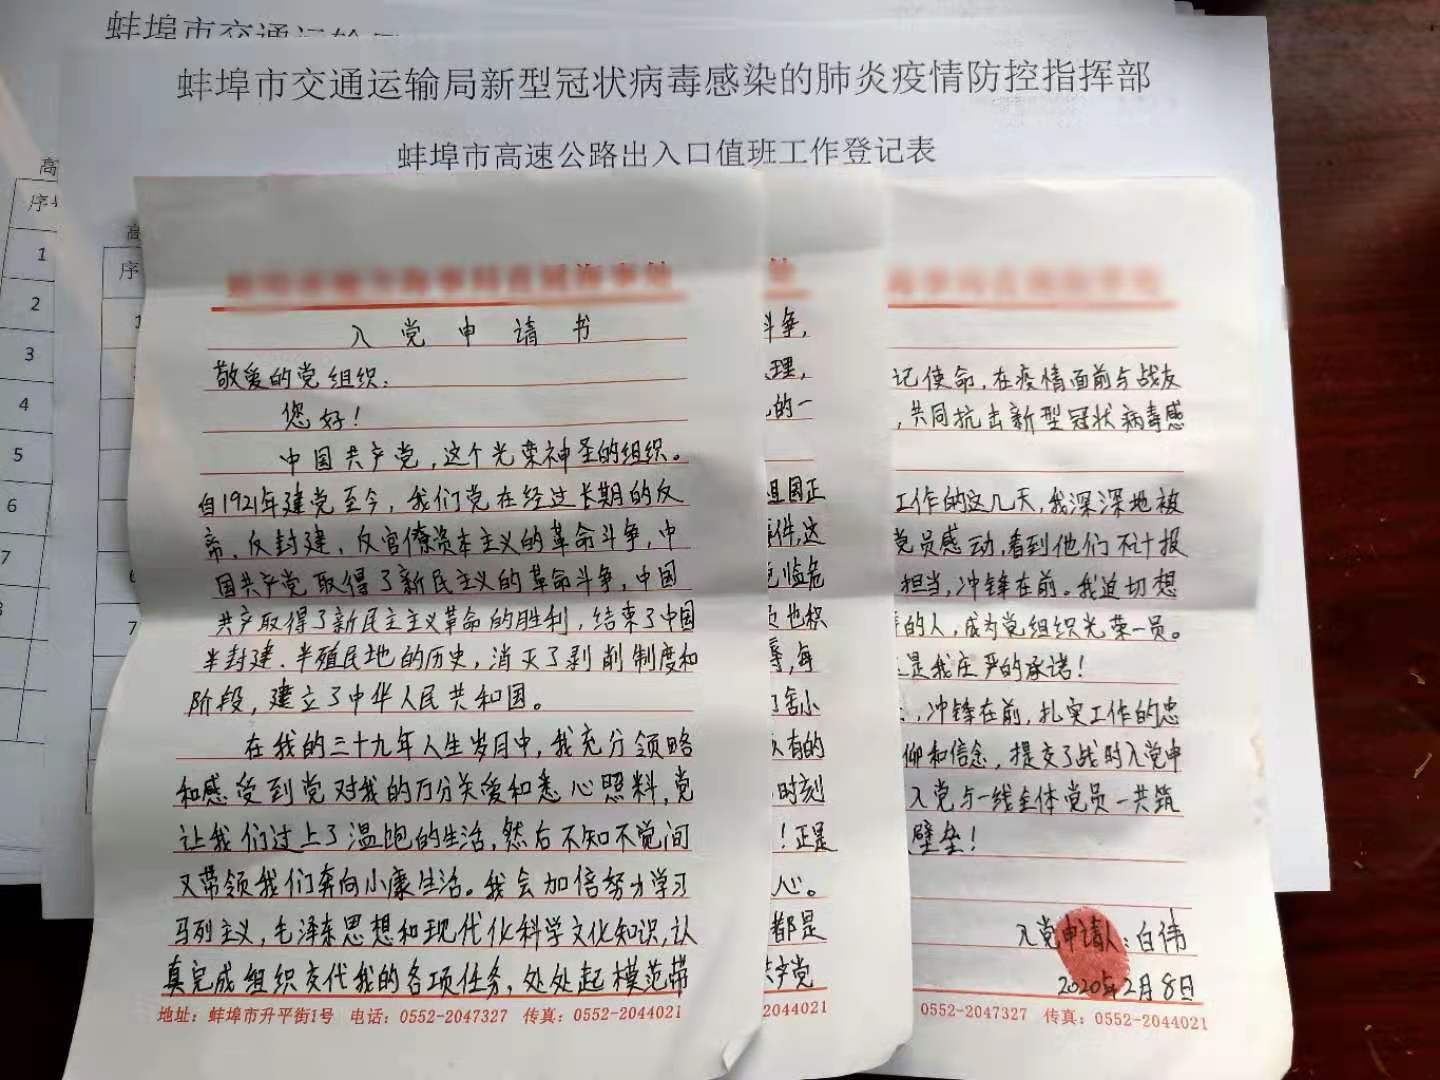 蚌埠市交通运输
蚌埠市交通运输局新型冠状病毒感染的肺炎疫情防控指挥部
蚌埠市高速公路出入口值班工作登记表
高
序
1
2
3
4
5
6
7
8
高
序
1
6
7
入党申请书
敬爱的党组织:
您好!
中国共产党,这个光荣神圣的组织。
自1921年建党至今,我们党在经过长期的反
帝、反封建、反官僚资本主义的革命斗争,中
国共产党取得了新民主义的革命斗争,中国
共产取得了新民主主义革命的胜利,结束了中国
半封建、半殖民地的历史,消灭了剥削制度和
阶段,建立了中华人民共和国。
在我的三十九年人生岁月中,我充分领略
和感受到党对我的万分关爱和悉心照料,党
让我们过上了温饱的生活,然后不知不觉间
又带领我们奔向小康生活。我会加倍努力学习
马列主义,毛泽东思想和现代化科学文化知识,认
真完成组织交代我的各项任务,处处起模范带
地址:蚌埠市升平街1号 电话:0552-2047327 传真:0552-2044021
斗争,
理,
的一
祖国正
事件,这
临危
也积
每
舍小
有的
时刻
!正是
心。
都是
共产党
0552-2044021
记使命,在疫情面前与战友
,共同抗击新型冠状病毒感
工作的这几天,我深深地被
党员感动,看到他们不计报
担当,冲锋在前。我迫切想
的人,成为党组织光荣一员。
是我庄严的承诺!
,冲锋在前,扎实工作的忠
仰和信念,提交了战时入党申
入党与一线全体党员一共筑
壁垒!
入党申请人:白伟
2020年2月8日
0552-2047327 传真:0552-2044021